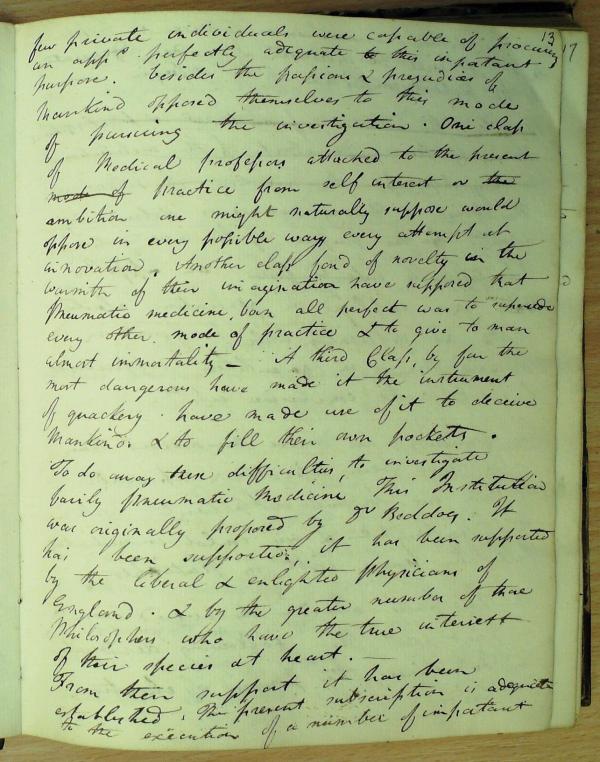 13
17
few private individuals were capable of procuring
an apps perfectly adequate to this important
purpose. besides the passions & prejudices of
Mankind opposed themselves to this mode
of pursuing the investigation. One class
of Medical professors attached to the present
mode of practice from self interest or the
ambition one might naturally suppose would
oppose in every possible way every attempt at
innovation. Another class fond of novelty in the
warmth of their imagination have supposed that
Pneumatic medicine, born all perfect was to supersede
every other mode of practice & to give to man
almost immortality — A third Class, by far the
most dangerous have made it the instrument
of quackery. have made use of it to deceive
Mankind & to fill their own pockets.
To do away these difficulties, to investigate
Pneumatic Medicine This Institution
was originally proposed by Dr Beddoes. It
has been supported, it has been supported
by the liberal & enlighted Physicians of
England. & by the greater number of those
Philosophers who have the true interest
of their species at heart. —
From their support it has been
established. The present subscription is adequate
to the execution of a number of important